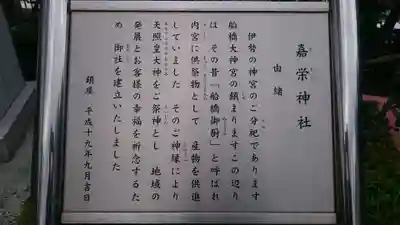 嘉栄神社
由緒
伊勢の神宮のご分祀であります
船橋大神宮の鎮まりますこの辺り
は その昔「船橋御厨」と呼ばれ
内宮に供祭物として 産物を供進
していました そのご神縁により
天照皇大神をご祭神とし 地域の
発展とお客様の幸福を祈念するた
め 御社を建立いたしました
鎮座 平成十九年九月吉日